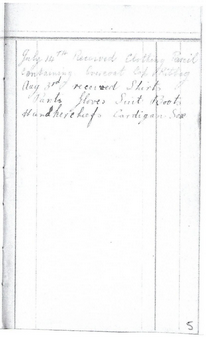 July 14th Received Clothing Parcil
Containing Overcoat Cap
Aug 3rd received Shirts
Pants Gloves Suit Boots
Handkerchiefs Cardigan Sox
5